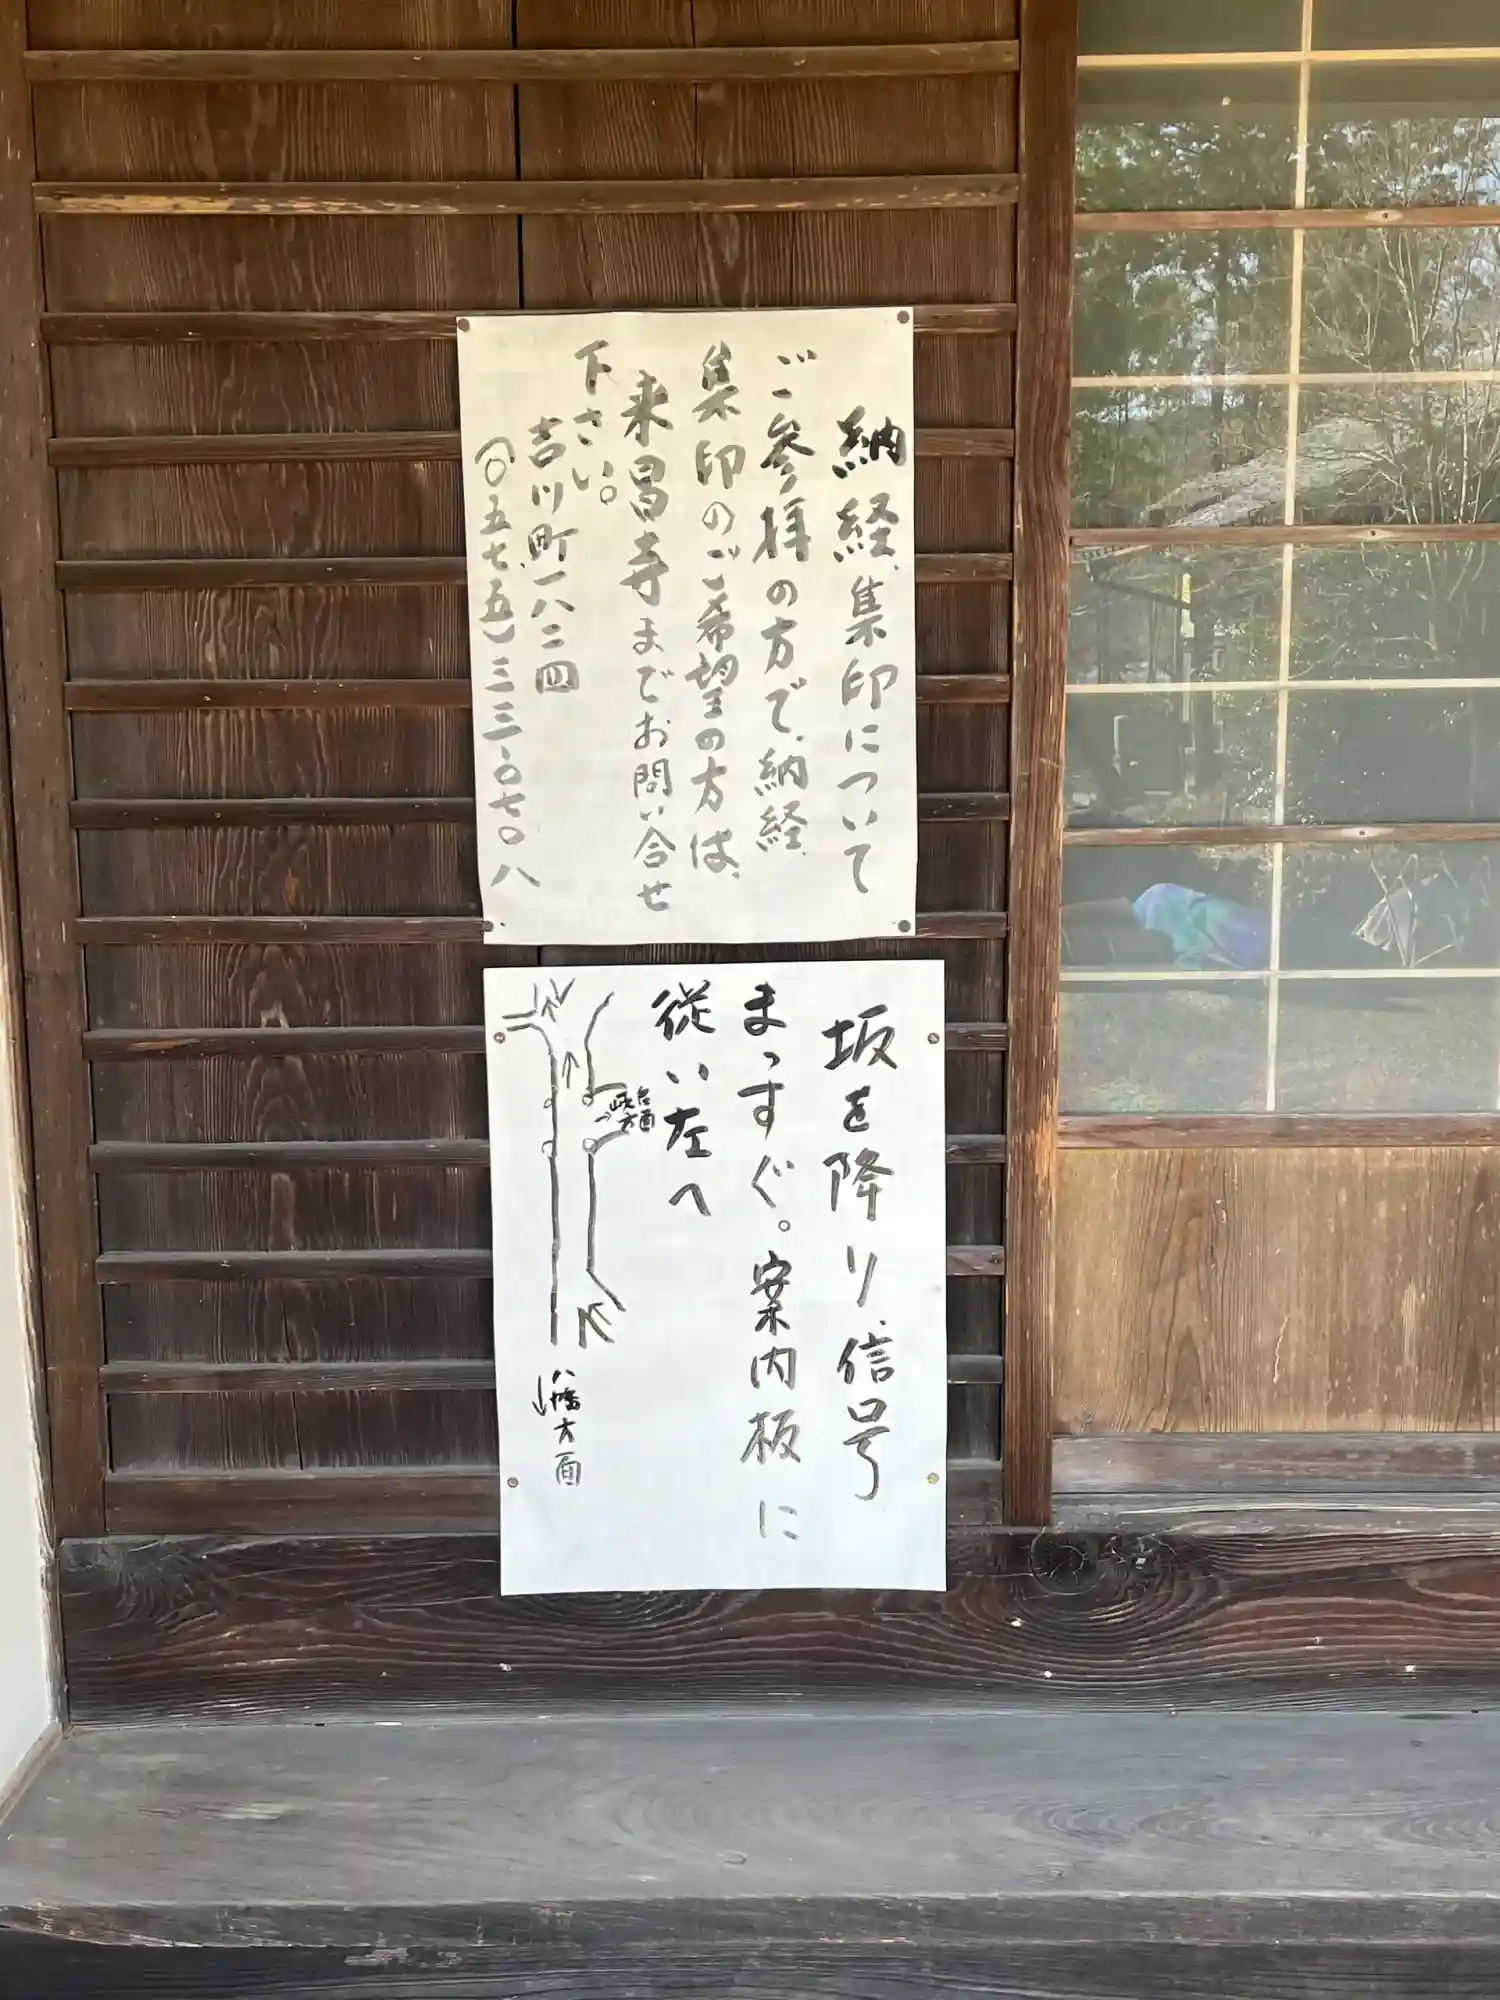 納経、集印について
ご参拝の方で、納経、
集印のご希望の方は、
来昌寺までお問い合せ
下さい。
吉川町一八二四
(〇五七五)三三-〇七〇八
坂を降り、信号
まっすぐ。案内板に
従い左へ
方面
八幡方面